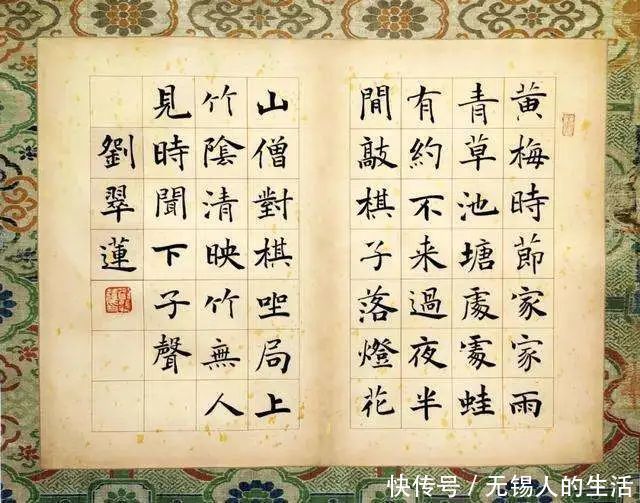 黃梅時節家家雨
青草池塘處處蛙
有約不来過夜半
閒敲棋子落燈花
山僧對棋坐局上
竹陰清映竹無人
見時聞下子聲
劉翠蓮
快传号/无锡人的生活